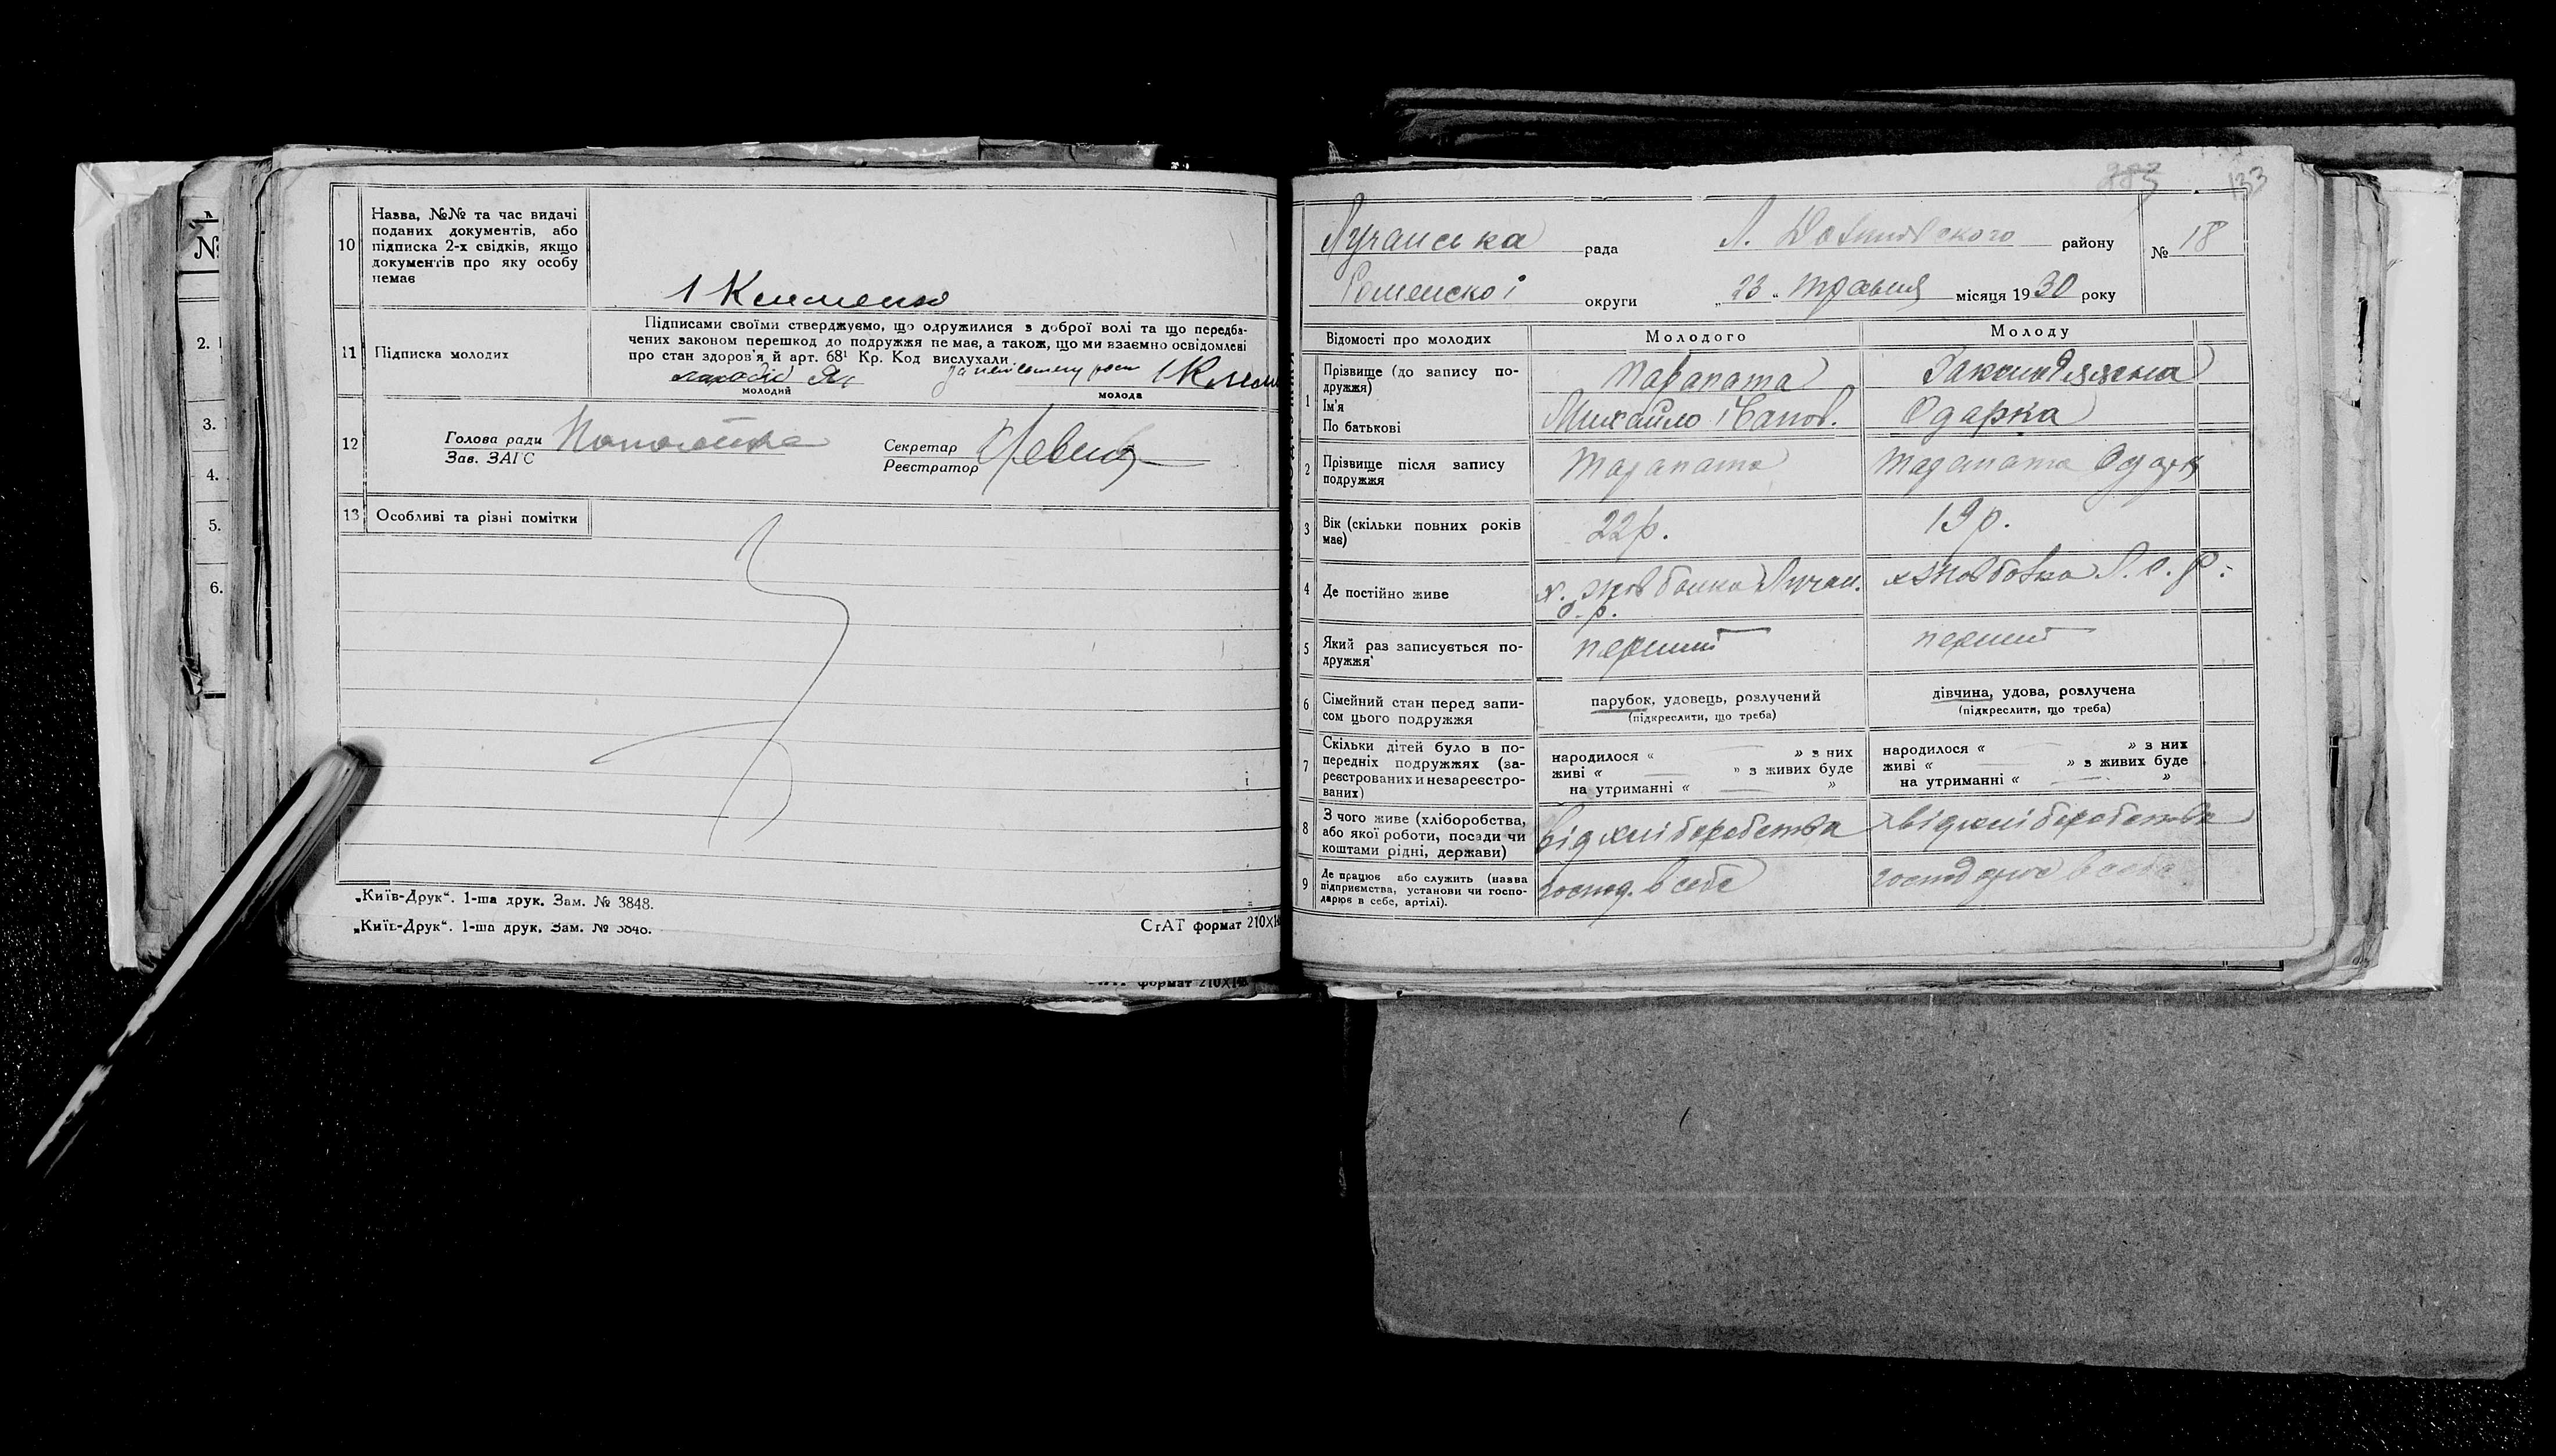 №
2.
3.
4.
5.
6.
10
Назва, №№ та час видачі
поданих документів, або
підписка 2-х свідків, якщо
документів про яку особу
немає
1 Клименко
11
Підписка молодих
Підписами своїми стверджуємо, що одружилися з доброї волі та що передба-
чених законом перешкод до подружжя немає, а також, що ми взаємно освідомлені
про стан здоров'я й арт. 68¹ Кр. Код вислухали
молодий
молода
12
Голова ради
Зав. ЗАГС
Секретар
Реєстратор
13
Особливі та різні помітки
„Київ-Друк“. 1-ша друк. Зам. № 3848.
„Київ-Друк“. 1-ша друк. Зам. № 3848.
СтАТ формат 210×1
формат 210×148
133
Лучанська рада Л. района
району
№ 18
Роменскої округи „23„ травня місяця 1930 року
Відомості про молодих
Молодого
Молоду
1
Прізвище (до запису по-
дружжя)
Ім'я
По батькові
Тарапата
Михайло Іванов.
Одарка
2
Прізвище після запису
подружжя
Тарапата
Тарапата Одарк
3
Вік (скільки повних років
має)
22 р.
19 р.
4
Де постійно живе
5
Який раз записується по-
дружжя
перший
перший
6
Сімейний стан перед запи-
сом цього подружжя
парубок, удовець, розлучений
(підкреслити, що треба)
дівчина, удова, розлучена
(підкреслити, що треба)
7
Скільки дітей було в по-
передніх подружжях (за-
реєстрованих и незареєстро-
ваних)
народилося « » з них
живі « » з живих буде
на утриманні « »
народилося « » з них
живі « » з живих буде
на утриманні « »
8
З чого живе (хліборобства,
або якої роботи, посади чи
коштами рідні, держави)
від хліборобства
від хліборобства
9
Де працює або служить (назва
підприємства, установи чи госпо-
дарює в себе, артілі).
господ. в себе
господарює в себе